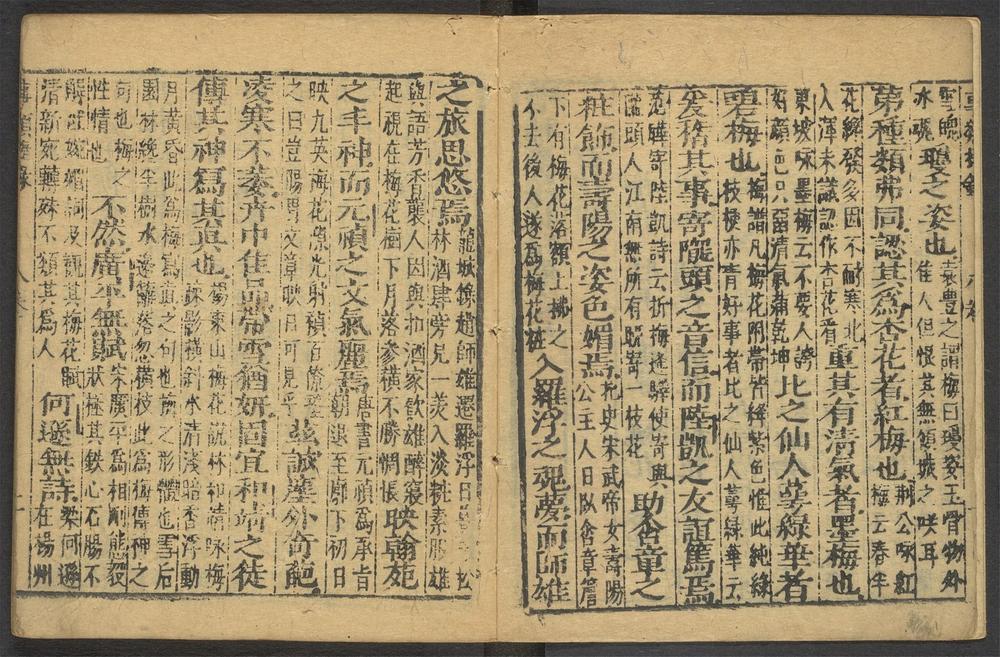 聖聰
冰魂
瓊之姿也
袁豐之謂梅曰瓊姿玉骨物外
佳人但恨其無傾城之咲耳
第種類弗同認其為杏花者紅梅也
荊公咏紅
梅云春半
花纔發多因不耐寒北
人渾未識認作杏花看
重其有清氣者墨梅也
東坡咏墨梅云不要人誇
好顏色只留清氣滿乾坤
比之仙人萼綠華者
碧梅也
梅譜凡梅花附帶皆絳紫色惟此純綠
枝梗亦青好事者比之仙人萼綠華云
爰稽其事寄隴頭之音信而陸凱之友誼篤焉
范曄寄陸凱詩云折梅逢驛使寄與
隴頭人江南無所有聊寄一枝花
助含章之
粧飾而壽陽之姿色媚焉
花史宋武帝女壽陽
公主人日臥含章簷
下有梅花落額上拂之
不去後人遂為梅花粧
入羅浮之魂夢而師雄
之旅思悠焉
龍城錄趙師雄遷羅浮日暮于松
林酒肆旁見一美人淡粧素服雄
與語芳香襲人因與扣酒家飲雄醉寢
起視在梅花樹下月落參橫不勝惆悵
映翰苑
之丰神而元禎之文氣麗焉
唐書元禎為承旨
朝退至廊下初日
映九英梅花隙光射禎百僚望
之曰豈腸胃文章映日可見乎
茲誠塵外奇葩
凌寒不萎卉中佳品帶雪猶妍固宜和靖之徒
傳其神寫其真也
楊東山梅花說林和靖咏梅
疎影橫斜水清淺暗香浮動
月黃昏此為梅寫真之句也梅之形體也雪后
園林纔半樹水邊籬落忽橫枝此為梅傳神之
句也梅之
性情也
不然廣平無賦
宋廣平為相剛態毅
狀極其鉄心石腸不
解吐媚詞及覌其梅花賦
清新宛轉殊不類其為人
何遜無詩
梁何遜
在楊州